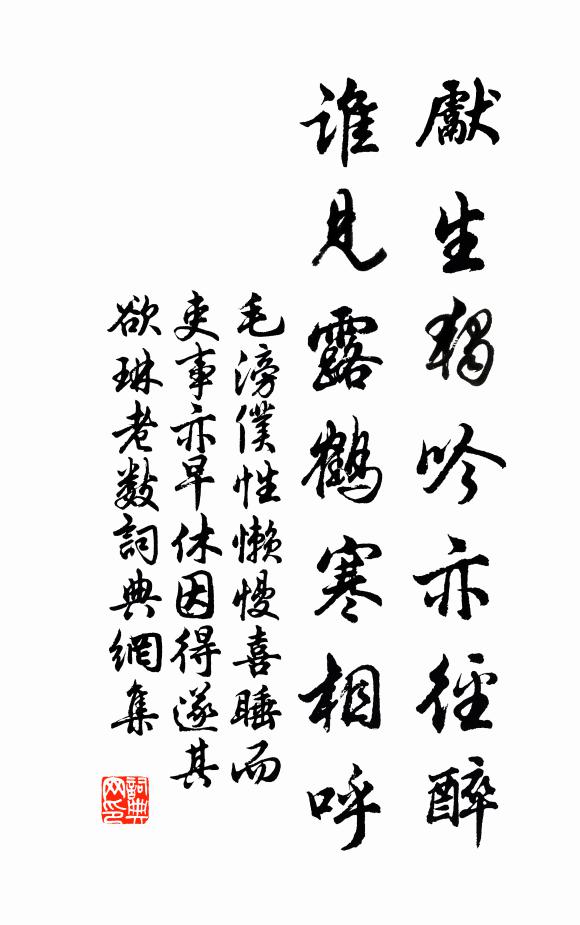 獻生獨吟亦徑醉
誰見露鶴寒相呼
毛滂僕性懶慢喜睡而
吏事亦早休因得遂其
欲琳老數詞典網集
詞典
网印